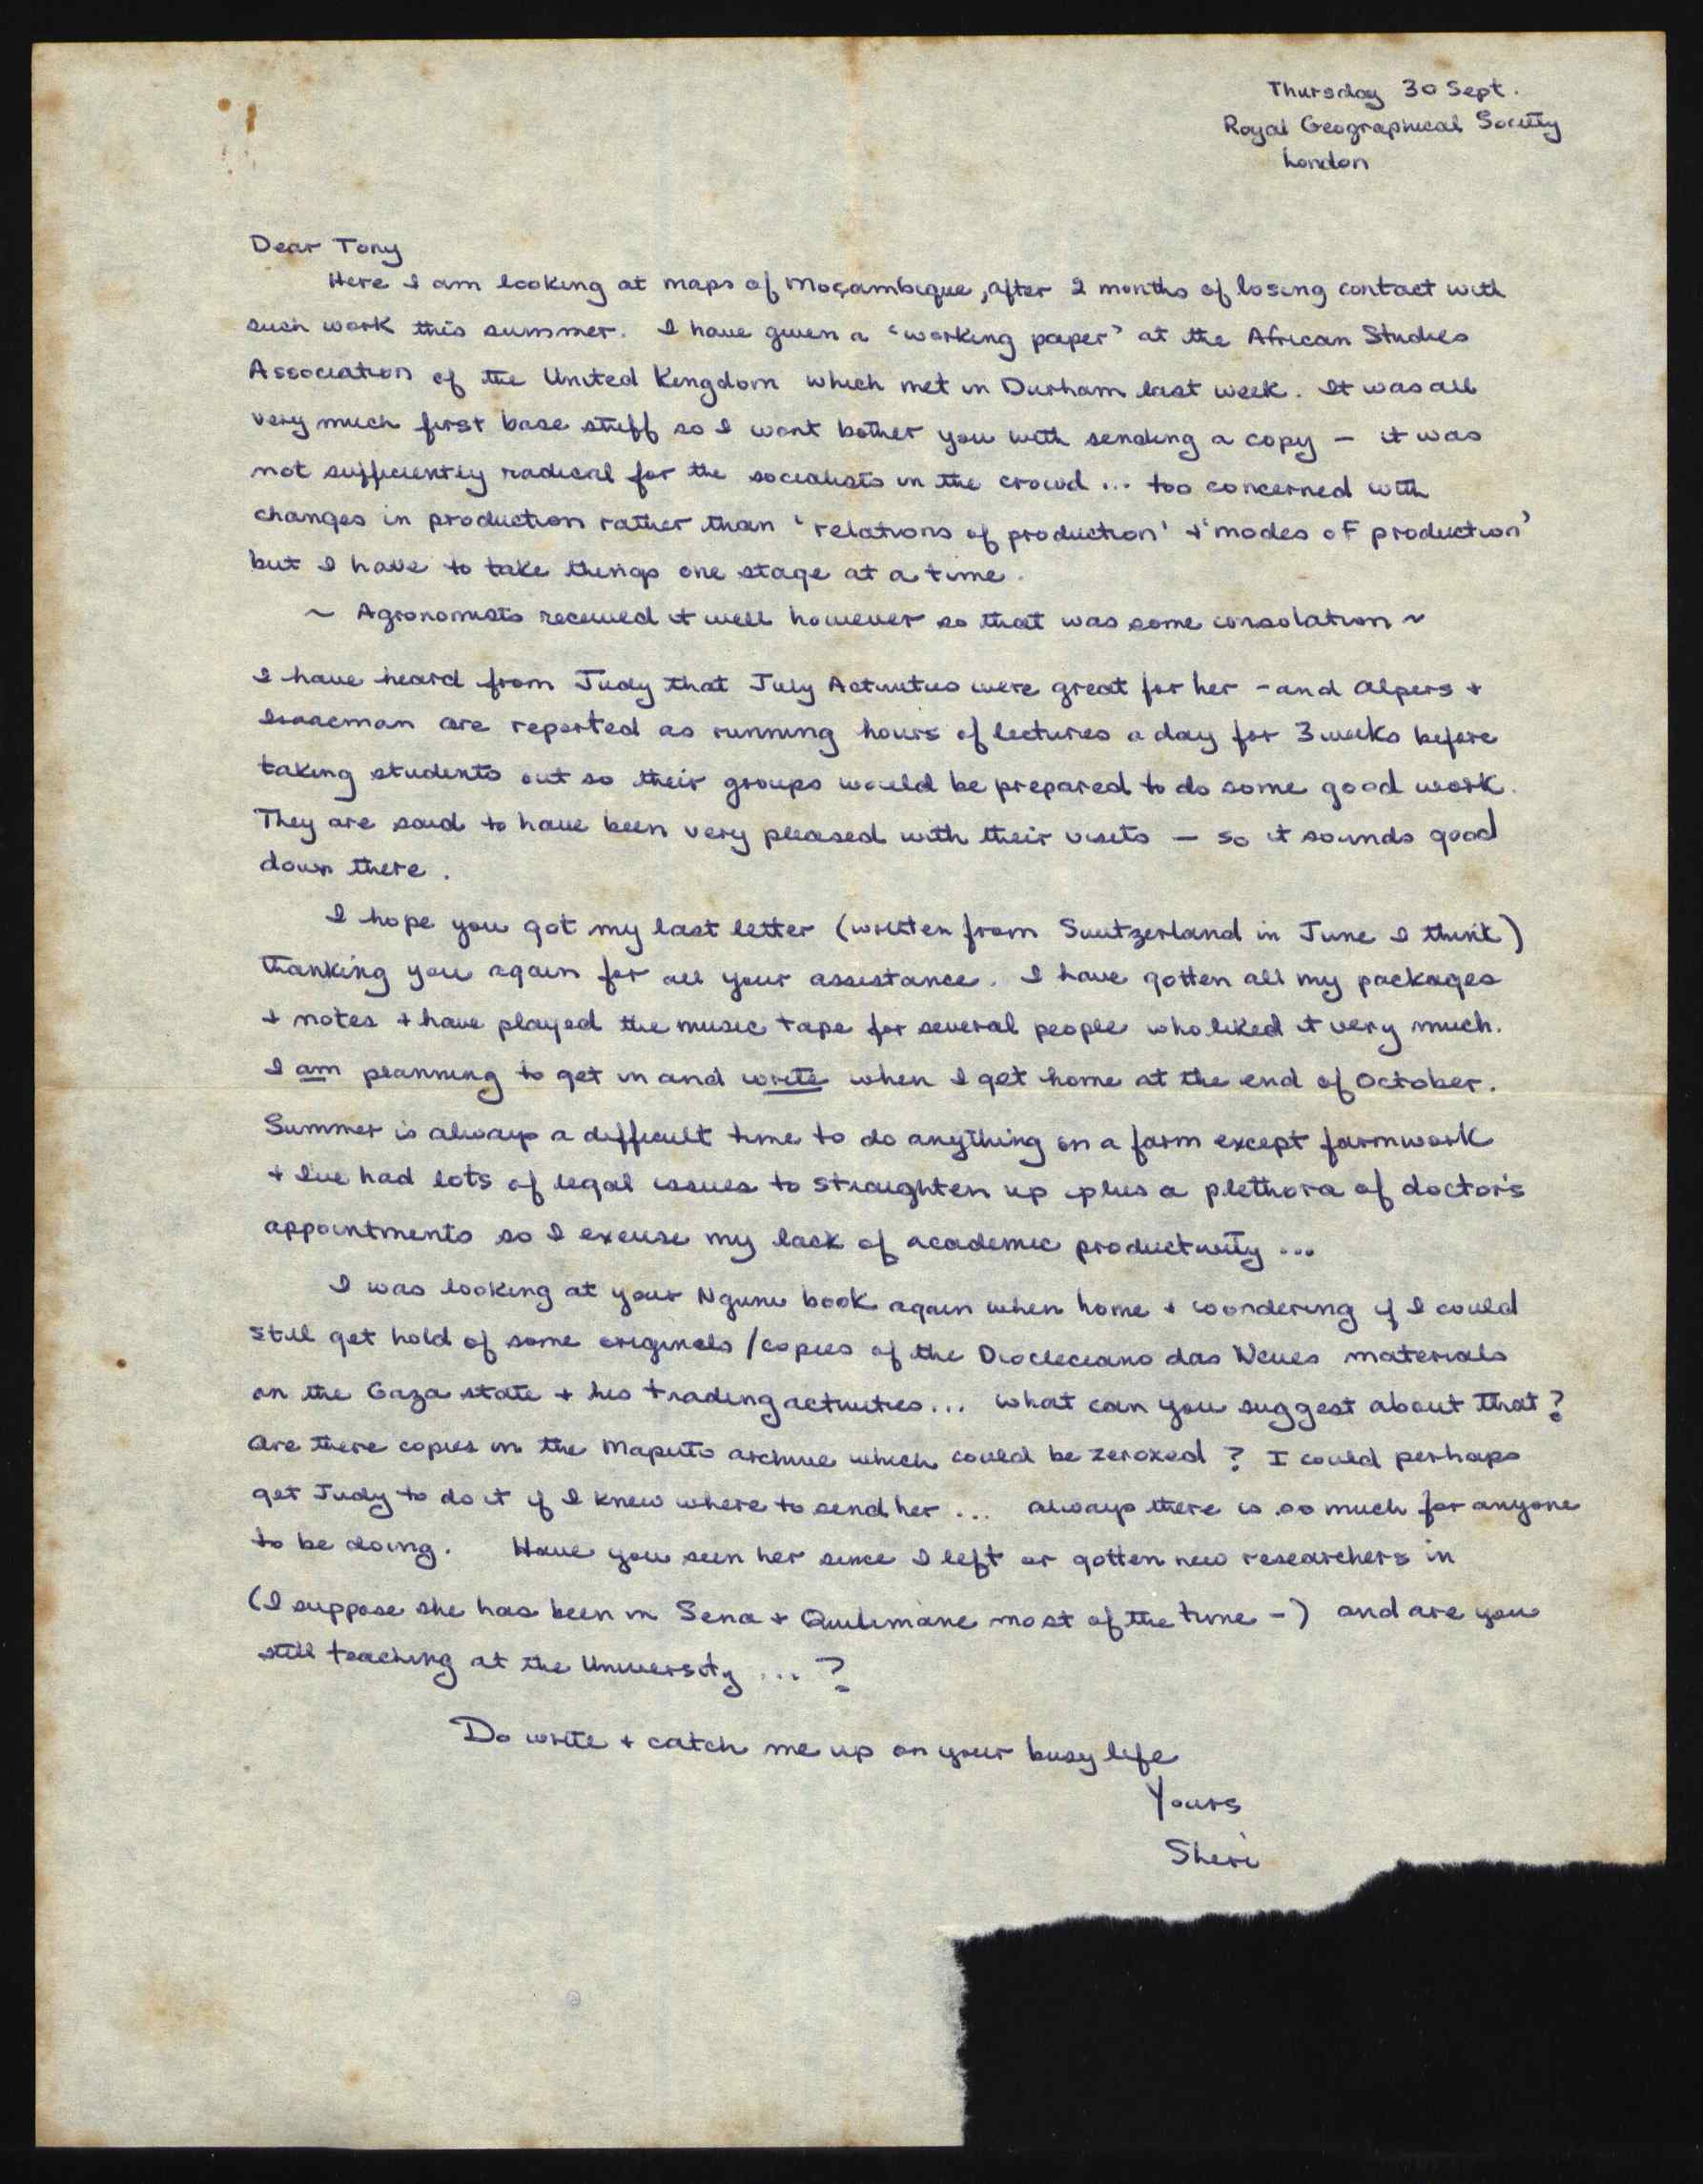 Thursday 30 Sept.
Royal Geographical Society
London
Dear Tony
Here I am looking at maps of Moçambique, after 2 months of losing contact with
such work this summer. I have given a 'working paper' at the African Studies
Association of the United Kingdom which met in Durham last week. It was all
very much first base stuff so I wont bother you with sending a copy – it was
not sufficiently radical for the socialists in the crowd ... too concerned with
changes in production rather than 'relations of production' + 'modes of production'
but I have to take things one stage at a time.
~ Agronomists received it well however so that was some consolation ~
I have heard from Judy that July Activities were great for her – and Alpers +
Isaacman are reported as running hours of lectures a day for 3 weeks before
taking students out so their groups would be prepared to do some good work.
They are said to have been very pleased with their visits – so it sounds good
down there.
I hope you got my last letter (written from Switzerland in June I think)
thanking you again for all your assistance. I have gotten all my packages
+ notes + have played the music tape for several people who liked it very much.
I am planning to get in and write when I get home at the end of October.
Summer is always a difficult time to do anything on a farm except farmwork
+ I've had lots of legal issues to straighten up plus a plethora of doctor's
appointments so I excuse my lack of academic productivity ...
I was looking at your Nguni book again when home + wondering if I could
still get hold of some originals / copies of the Diocleciano das Neves materials
on the Gaza state + his trading activities... What can you suggest about that?
Are there copies in the Maputo archive which could be zeroxed? I could perhaps
get Judy to do it if I knew where to send her ... always there is so much for anyone
to be doing. Have you seen her since I left or gotten new researchers in
(I suppose she has been in Sena + Quilimane most of the time –) and are you
still teaching at the University ...?
Do write + catch me up on your busy life
Yours
Sheri